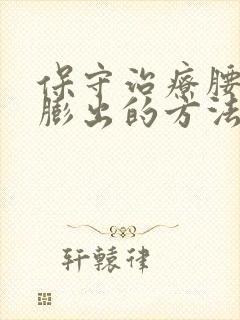 保守治疗腰
膨出的方法
轩辕律